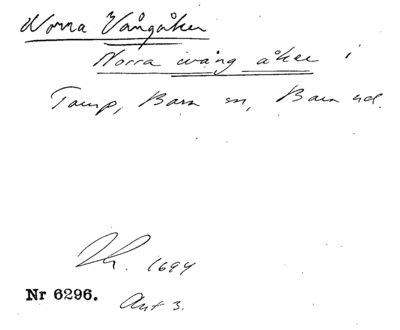 Norra Vångåker
Norra wång åker i
Torup, Bara sn, Bara hd.
Lk. 1694
Nr 6296. Akt 3.